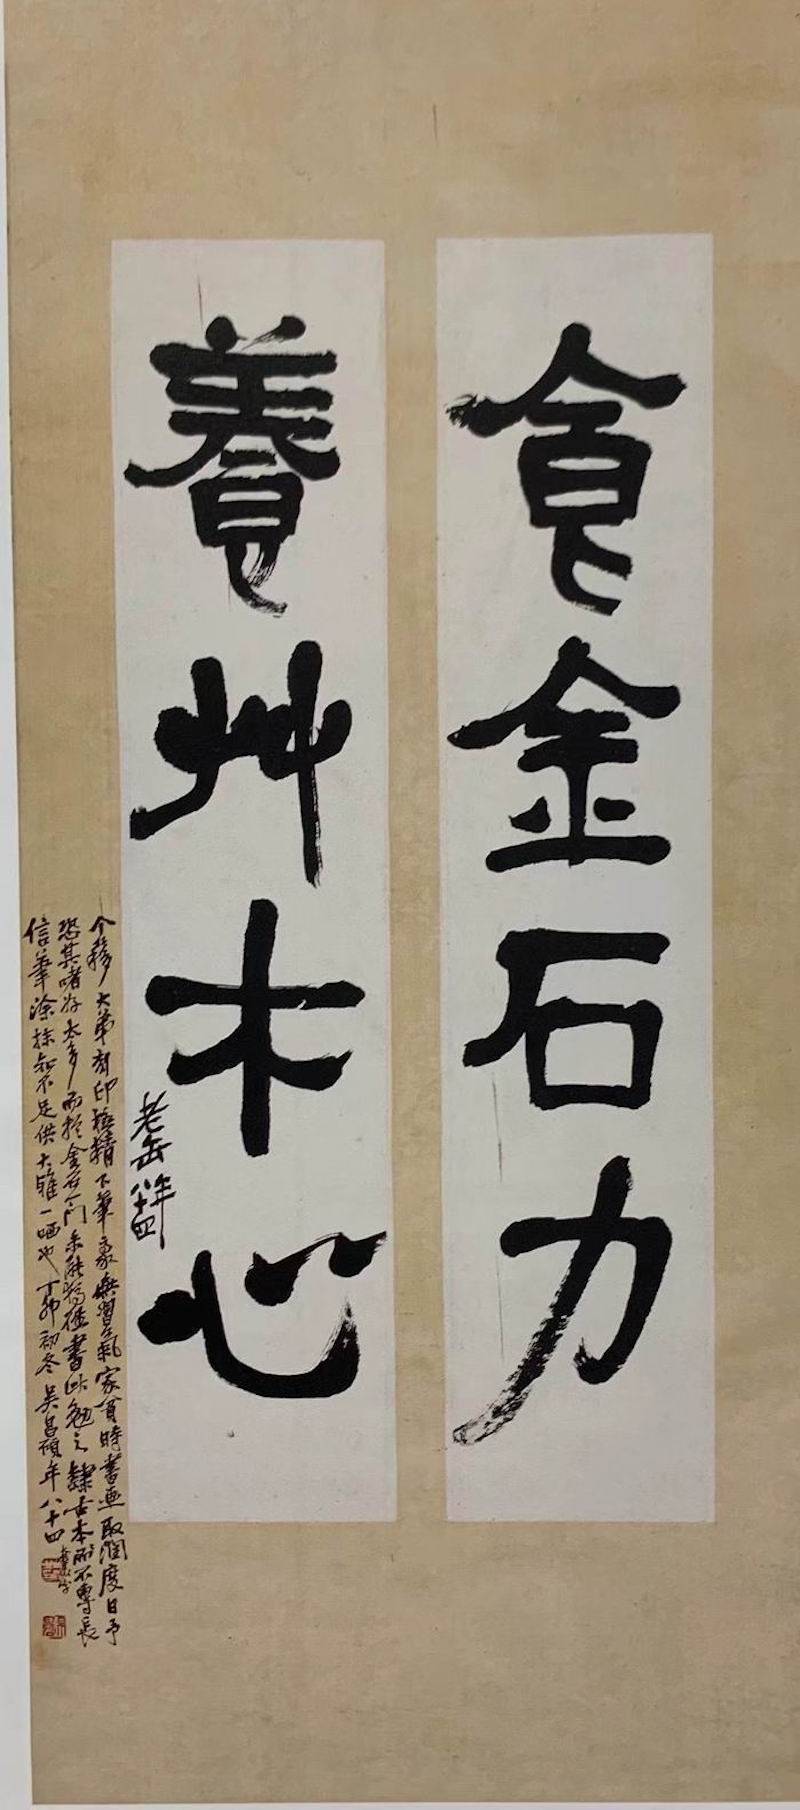 食金石力
養艸木心
老缶年八十四
大弟刻印極精下筆豪無習氣家貧時書画取潤度日予
恐其嗜好太多而於金石一門未能獨碓書此勉之隸古本所不專長
信筆涂抹知不足供大雅一哂也丁卯初冬吳昌碩年八十四